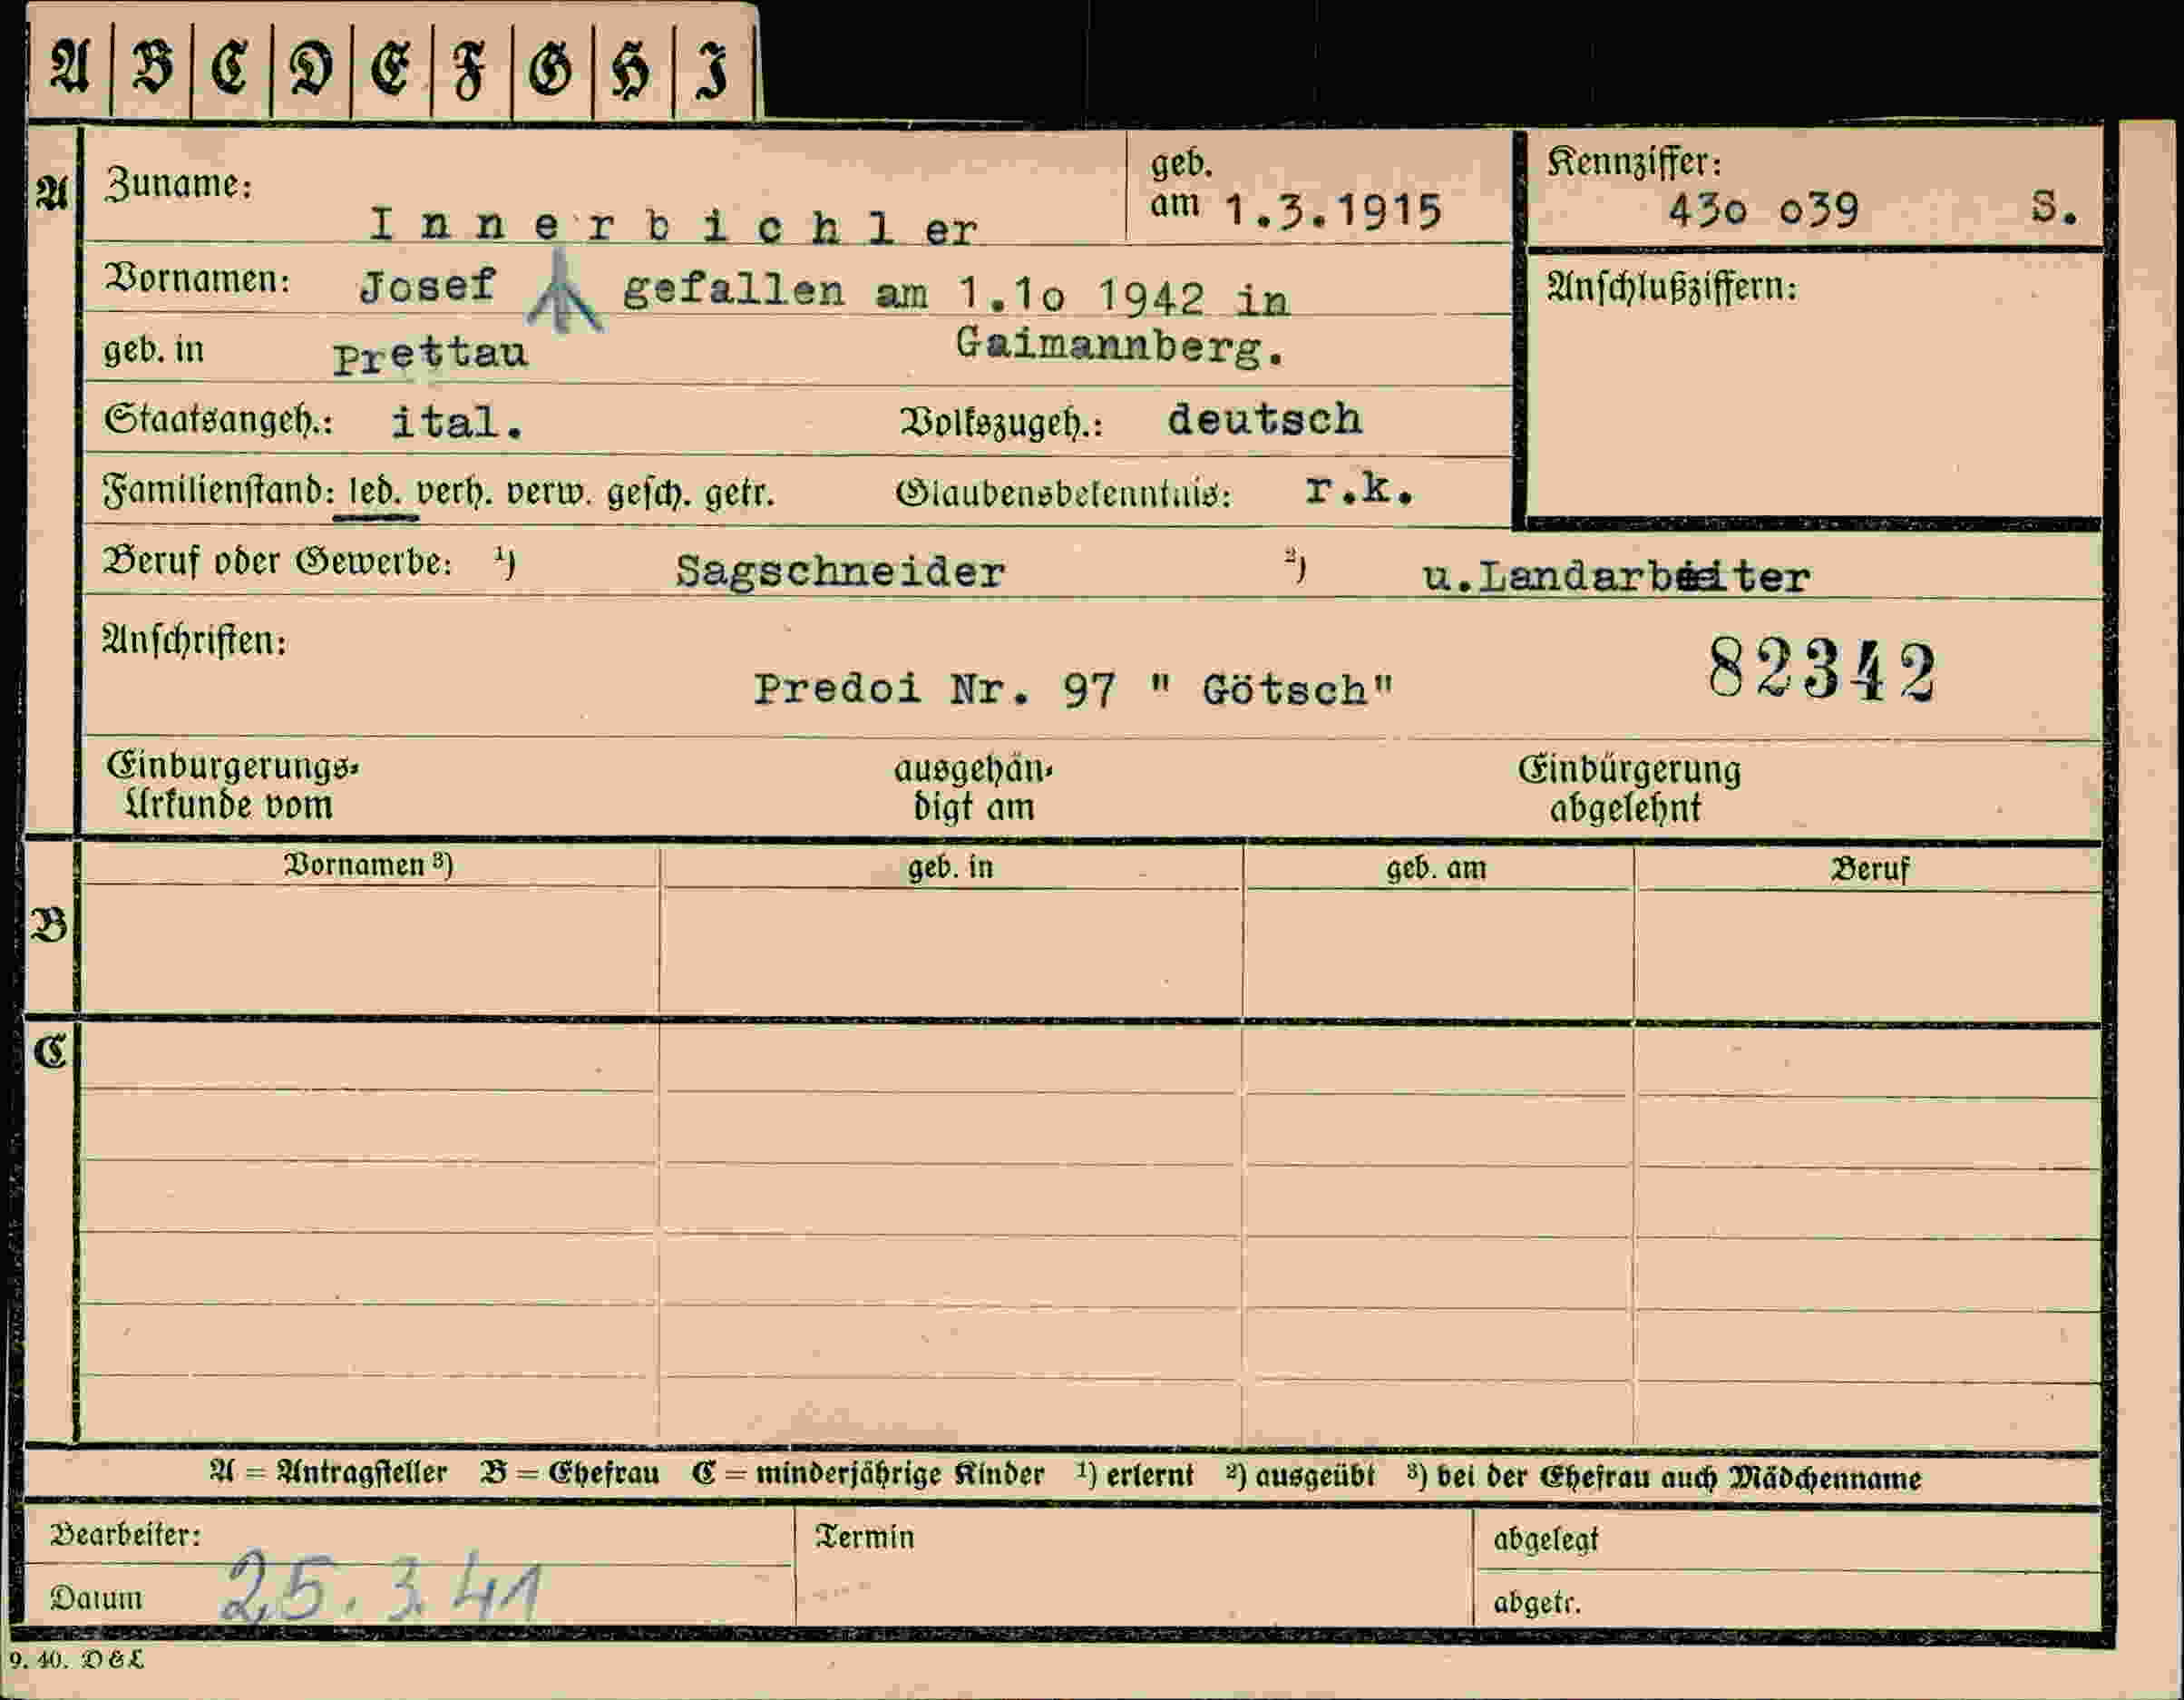 A B C D E F G H I
A
Zuname: Innerbichler
geb. am 1.3.1915
Kennziffer: 43o o39 S.
Vornamen: Josef gefallen am 1.1o 1942 in
Anschlußziffern:
geb. in Prettau Gaimannberg.
Staatsangeh.: ital. Volkszugeh.: deutsch
Familienstand: led. verh. verw. gesch. getr. Glaubensbekenntnis: r.k.
Beruf oder Gewerbe: 1) Sagschneider 2) u.Landarbeiter
Anschriften:
Predoi Nr. 97 " Götsch" 82342
Einbürgerungs- ausgehän- Einbürgerung
Urkunde vom digt am abgelehnt
Vornamen 3) geb. in geb. am Beruf
B
C
A = Antragsteller B = Ehefrau C = minderjährige Kinder 1) erlernt 2) ausgeübt 3) bei der Ehefrau auch Mädchenname
Bearbeiter: Termin abgelegt
Datum 25.3.41 abgetr.
9. 40. D & L